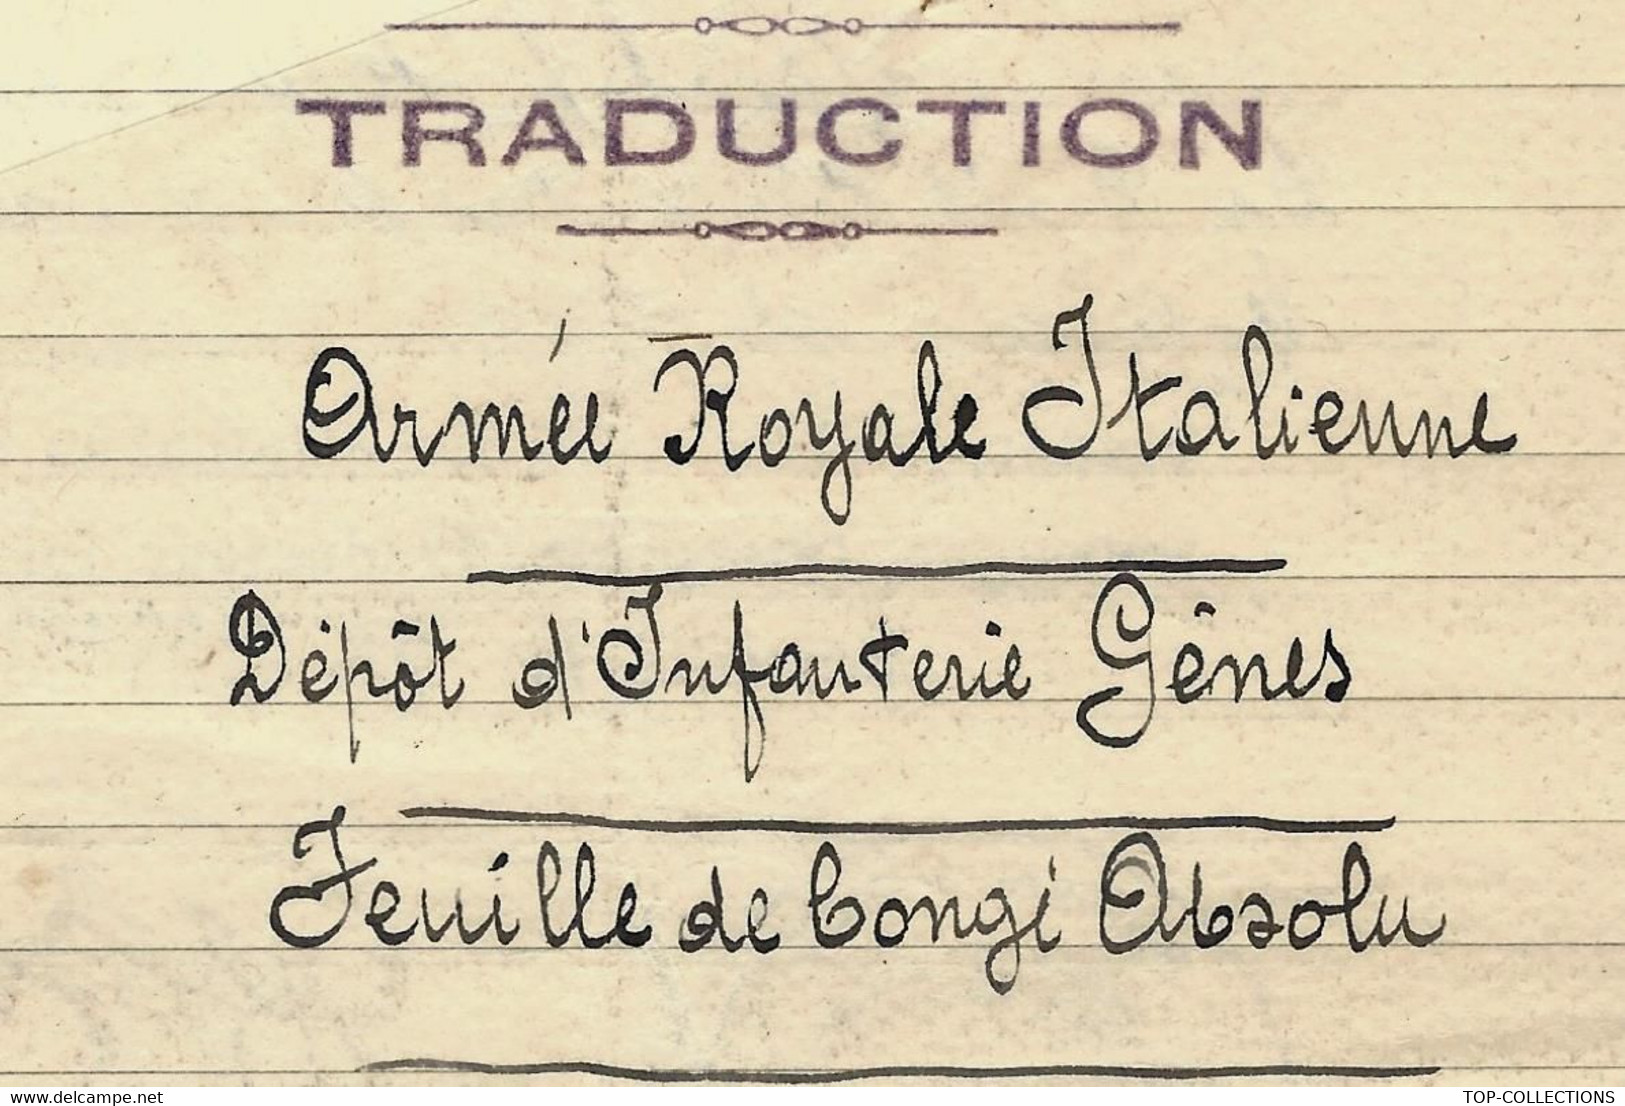 TRADUCTION
Armée Royale Italienne
Dépôt d'Infanterie Gênes
Feuille de Congé Absolu
www.delcampe.net
TOP-COLLECTIONS